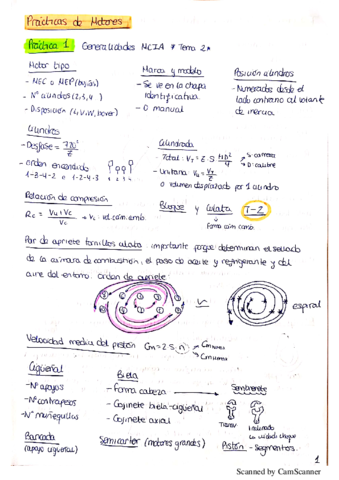 Prácticas de Motores
Práctica 1 Generalidades MCIA * Tema 2*
Motor tipo
- MEC o MEP (bujías)
- Nº cilindros (2,3,4)
- Disposición (L,V,W,boxer)
Marca y modelo
- Se ve en la chapa
identificativa
- O manual
Posición cilindros
- Numerados desde el
lado contrario al volante
de inercia
Cilindros
- Desfase = 720º
- orden encendido
1-3-4-2 o 1-2-4-3
Cilindrada
- Total: VT = Z·S πD²/4
S: carrera
D: calibre
- Unitaria Vu = VT/Z
o volumen desplazado por 1 cilindro
Relación de compresión
Rc = Vu+Vc/Vc → Vc: vol. cám. comb.
Bloque y culata T-Z
Forma cám. comb.
Par de apriete tornillos culata: importante porque determinan el sellado
de la cámara de combustión, el paso de aceite y refrigerante y del
aire del entorno. orden de apriete:
espiral
Velocidad media del pistón Cm = 2·S·n
Cigüeñal
- Nº apoyos
- Nº contrapesos
- Nº muñequillas
Bancada
(apoyo cigüeñal)
Biela
- Forma cabeza
- Cojinete biela-cigüeñal
- Cojinetes antifricción
Sombrerete
Recta
Inclinada
Semicárter (motores grandes)
Pistón - Segmentos
1
Scanned by CamScanner